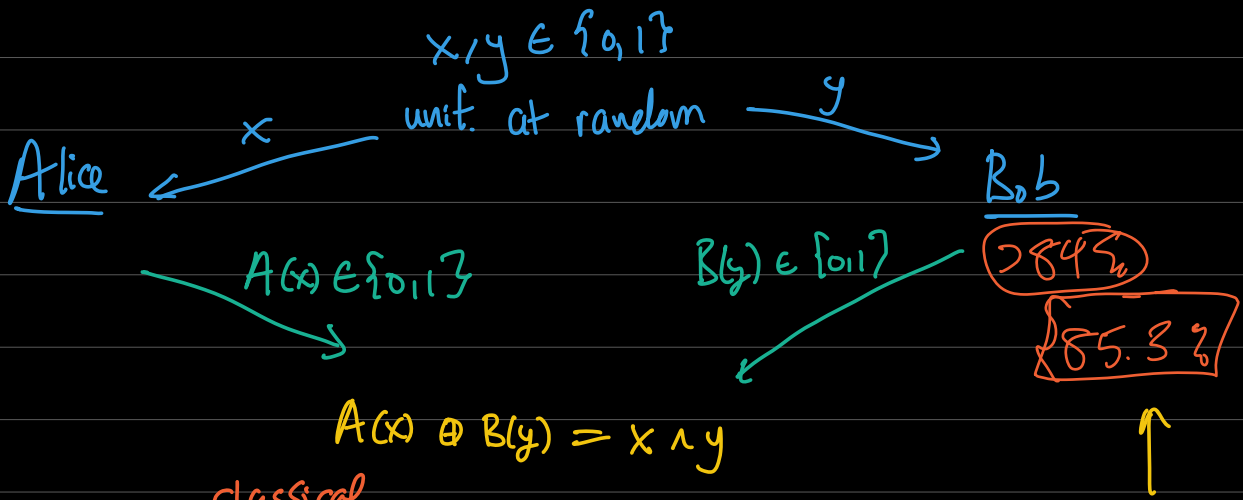 x, y ∈ {0, 1}
unif. at random
x
y
Alice
Bob
A(x) ∈ {0, 1}
B(y) ∈ {0, 1}
>84%
85.3%
A(x) ⊕ B(y) = x ∧ y
classical